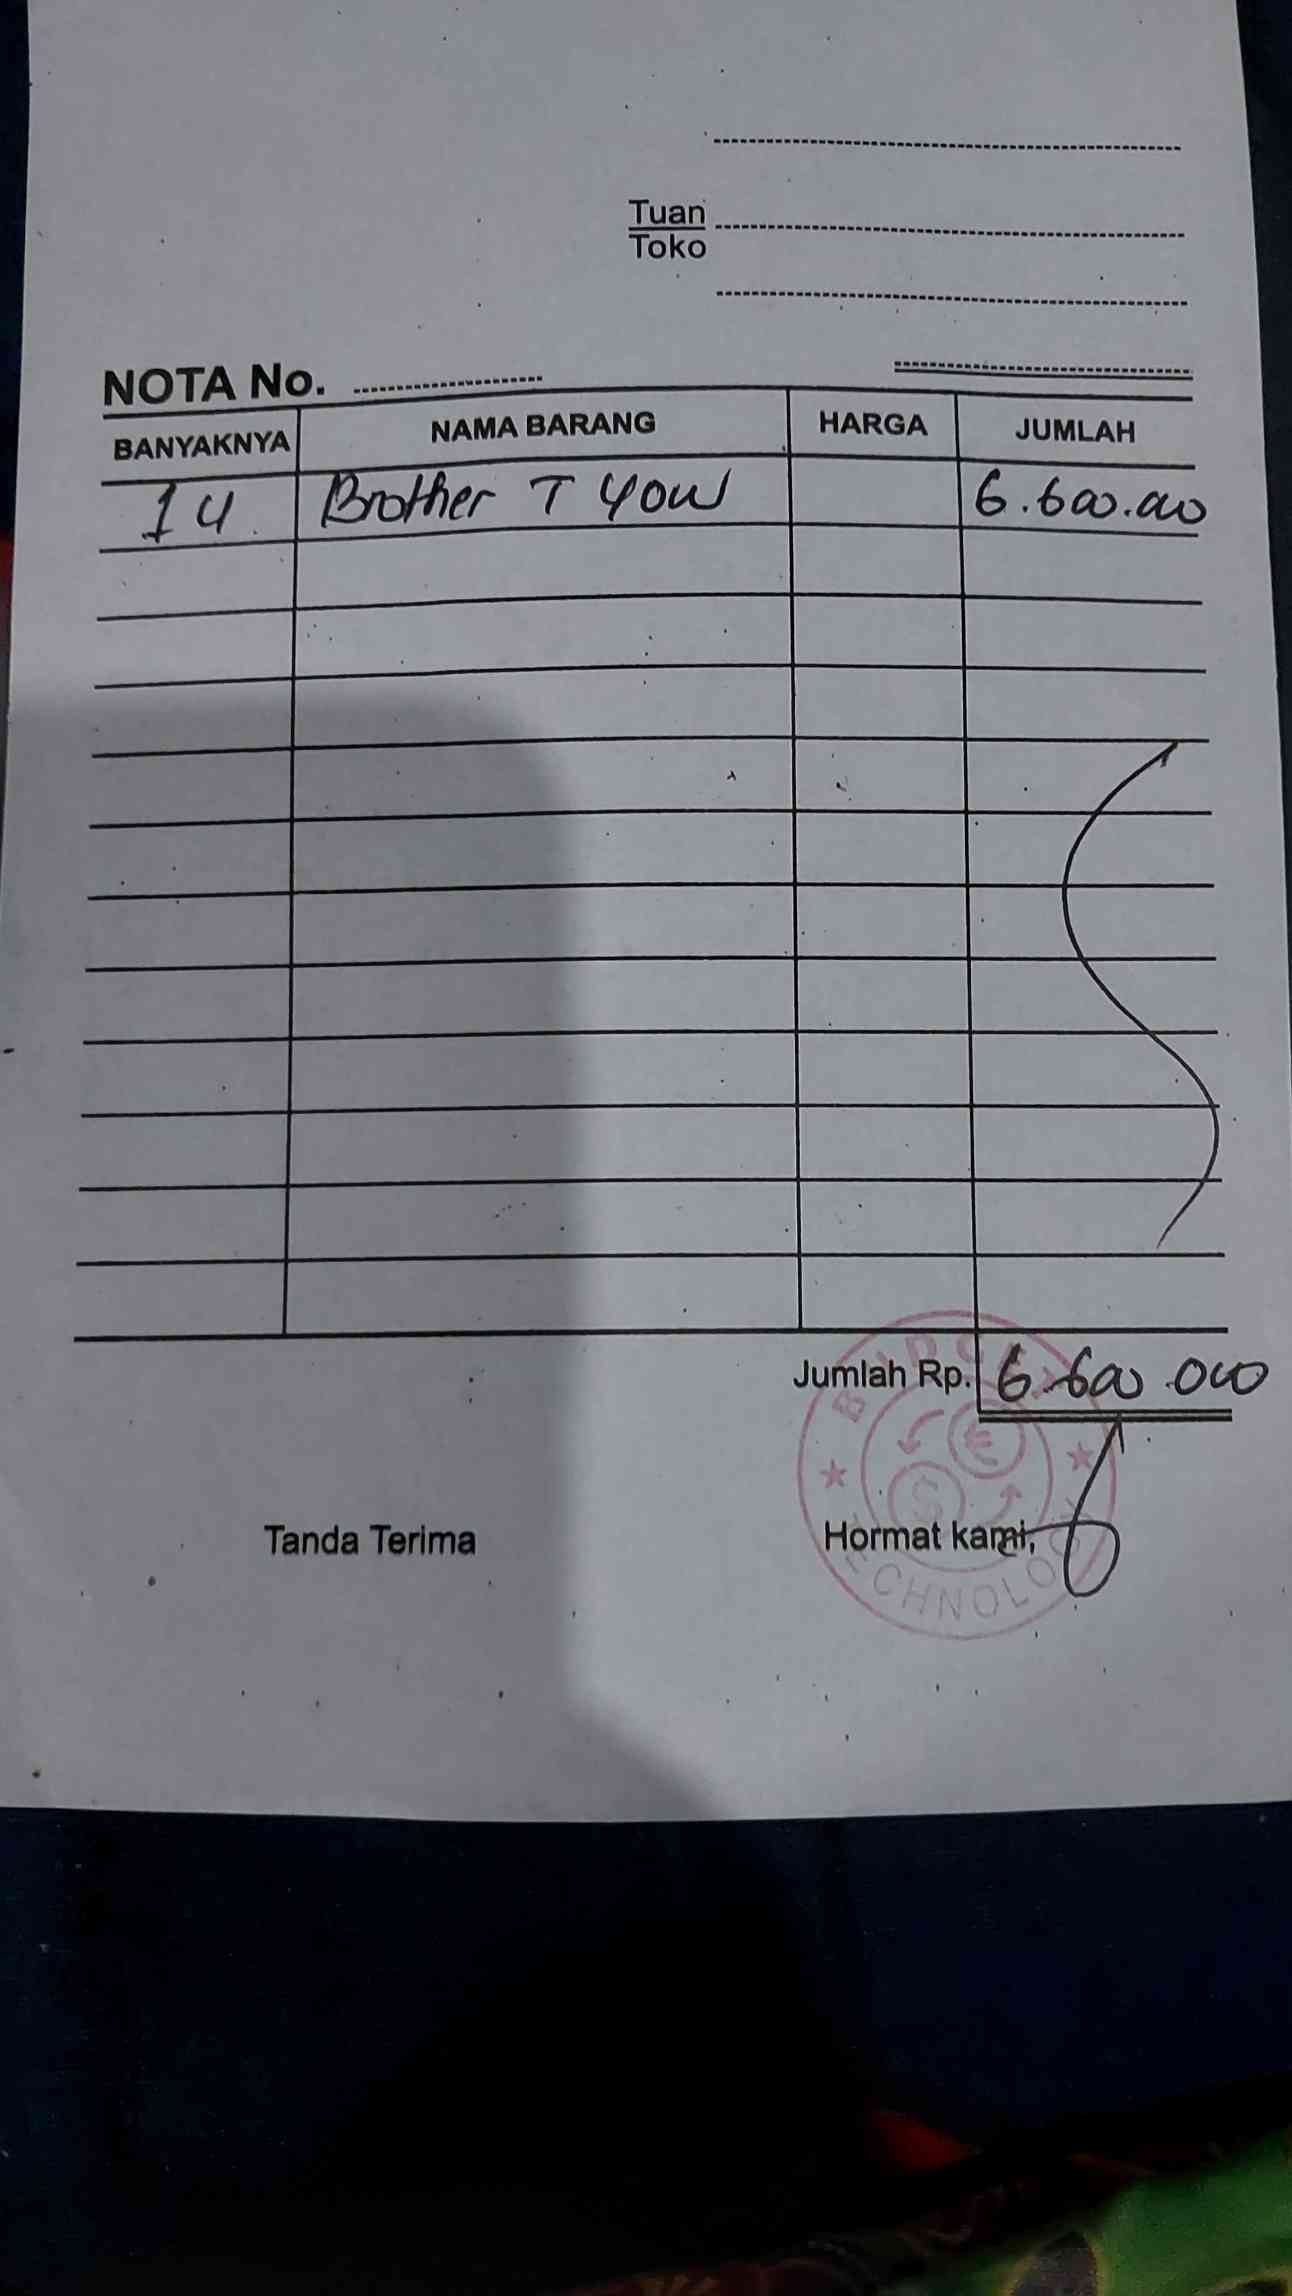 Tuan
Toko
NOTA No.
BANYAKNYA NAMA BARANG HARGA JUMLAH
1 U Brother T 40W 6.600.000
Jumlah Rp. 6.600.000
Tanda Terima Hormat kami,